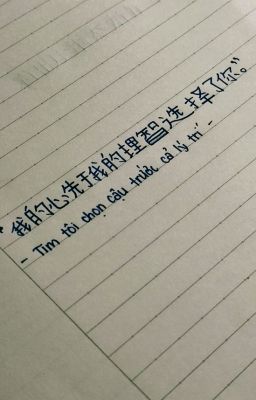 "我的心先于我的理智选择了你。"
- Tim tôi chọn cậu trước cả lý trí -